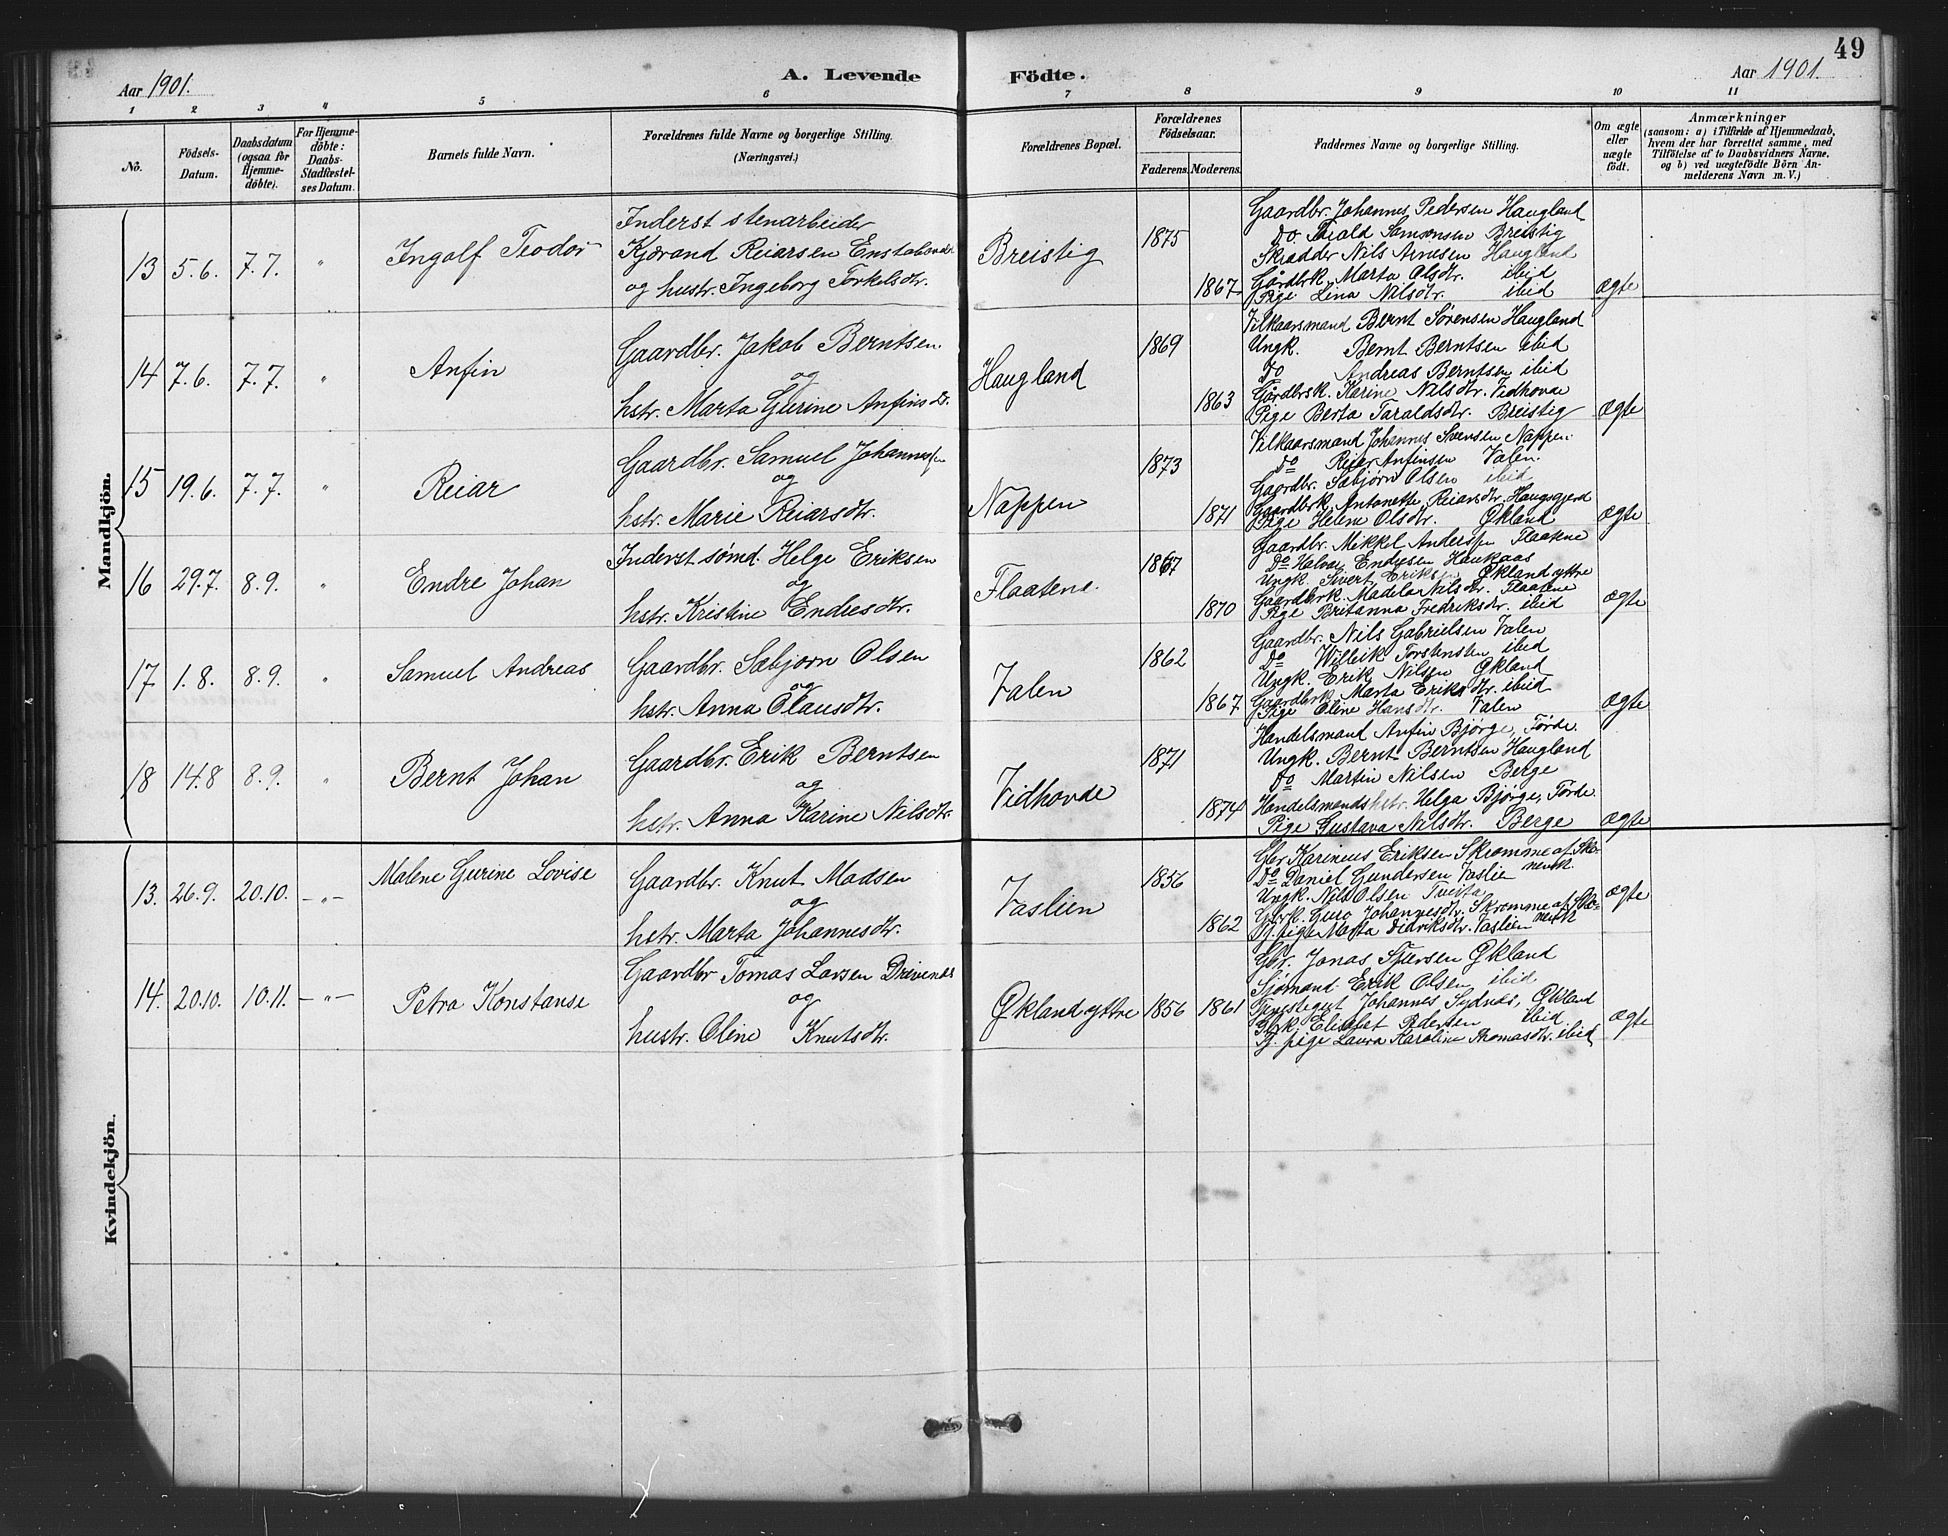 49
Aar 1901.
A. Levende Födte.
Aar 1901.
1 2 3 4 5 6 7 8 9 10 11
No.
Födsels-
Datum.
Daabsdatum
(ogsaa for
Hjemme-
döbte).
For Hjemme-
döbte:
Daabs-
Stadfæstel-
ses Datum.
Barnets fulde Navn.
Forældrenes fulde Navne og borgerlige Stilling.
(Næringsvei.)
Forældrenes Bopæl.
Forældrenes
Födselsaar.
Faderens. Moderens.
Faddernes Navne og borgerlige Stilling.
Om ægte
eller
uægte
födt.
Anmærkninger
(saasom: a) i Tilfælde af Hjemmedaab,
hvem der har forrettet samme, med
Tilföielse af to Daabsvidners Navne,
og b) ved uægtefödte Börn An-
melderens Navn m. V.)
Mandkjön.
13 5.6. 7.7. " Ingolf Teodor
Inderst stenarbeider
Kjærand Reiarsen
og hustr. Ingeborg Torkelsdtr.
Breistig 1875 1867
Gaardbr. Johannes Pedersen Haugland
Do Samsonsen Breistig
Skrædder Nils Arnesen Haugland
Gårdbrk. Marta Olsdtr. ibid
Pige Lina Nilsdtr. ibid
Ægte
14 7.6. 7.7. " Anfin
Gaardbr. Jakob Berntsen
og
hstr. Marta Gurine Anfinsd.
Haugland 1869 1863
Vilkaarsmand Bernt Sørensen Haugland
Ungk. Bernt Berntsen ibid
Do Andreas Berntsen ibid
Gårdbrsk. Karine Nilsdtr. Vidhovde
Pige Berta Taraldsdtr. Breistig
Ægte
15 19.6. 7.7. " Reiar
Gaardbr. Samuel Johannessen
og
hstr. Marie Reiarsdtr.
Nappen 1873 1871
Vilkaarsmand Johannes Svensen Nappen
Do Reier Anfinsen Valen.
Gaardbr. Sæbjørn Olsen ibid
Gaardbrk. Antonette Reiarsdtr. Haugsgjerd
Pige Helene Olsdtr. Økland
Ægte
16 29.7. 8.9. " Endre Johan
Inderst sømd. Helge Eriksen
og
hstr. Kristine Endresdtr.
Flaatene. 1867 1870
Gaardbr. Mikkel Anderssen Flaatene
Do Halvor Endresen Haukaas
Ungk. Sivert Eriksen Økland yttre
Gaardbrk. Madela Nilsdtr. Flaatene
Pige Britanna Fredriksdtr. ibid
Ægte
17 1.8. 8.9. " Samuel Andreas
Gaardbr. Sæbjørn Olsen
og
hstr. Anna Olausdtr.
Valen 1862 1867
Gaardbr. Nils Gabrielsen Valen
Do Willeik Torstensen ibid
Ungk. Erik Nilsen Økland
Gaardbrk. Marta Eriksdtr. ibid
Pige Oline Hansdtr. Valen
Ægte
18 14.8 8.9. " Bernt Johan
Gaardbr. Erik Berntsen
og
hstr. Anna Karine Nilsdtr.
Vidhovde 1871 1874
Handelsmand Anfin Bjørge, Førde.
Ungk. Bernt Berntsen Haugland
Do Martin Nilsen Berge
Handelsmands hstr. Helga Bjørge, Førde.
Pige Gustava Nilsdtr. Berge
Ægte
Kvindekjön.
13. 26.9. 20.10. -"- Malene Gurine Lovise
Gaardbr. Knut Madsen
og
hstr. Marta Johannesdtr.
Vaslien 1856 1862
Gbr. Karinius Eriksen Skromme af Ska-
Do Daniel Gundersen Vaslie nevik.
Ungk. Nils Olsen Tveita
Gbrk. Guro Johannesdtr. Skromme af Ska-
Tj. pige Marta Didriksdtr. Vaslien nevik
Ægte
14. 20.10. 10.11. -"- Petra Konstanse
Gaardbr Tomas Larsen Drivenes
og
hustr. Oline Knutsdtr.
Økland yttre 1856 1861
Gbr. Jonas Iversen Økland
Sjømand. Erik Olsen ibid
Johannes Sydnes, Økland
Gbrk. Elisabet Pedersen ibid.
Tj. pige Laura Karoline Thomasdtr. ibid
Ægte